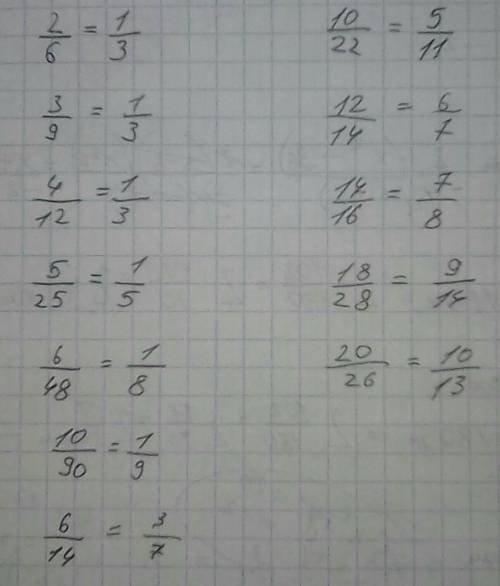 2/6 = 1/3
3/9 = 1/3
4/12 = 1/3
5/25 = 1/5
6/48 = 1/8
10/90 = 1/9
6/14 = 3/7
10/22 = 5/11
12/14 = 6/7
14/16 = 7/8
18/28 = 9/14
20/26 = 10/13